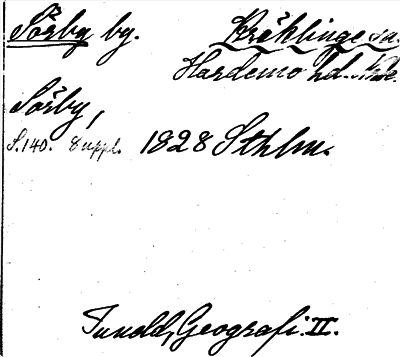 Sörby by. Kräklinge sn.
Hardemo hd. Närke.
Sörby,
S. 140. 8 uppl. 1828 Sthlm.
Tuneld, Geografi. II.